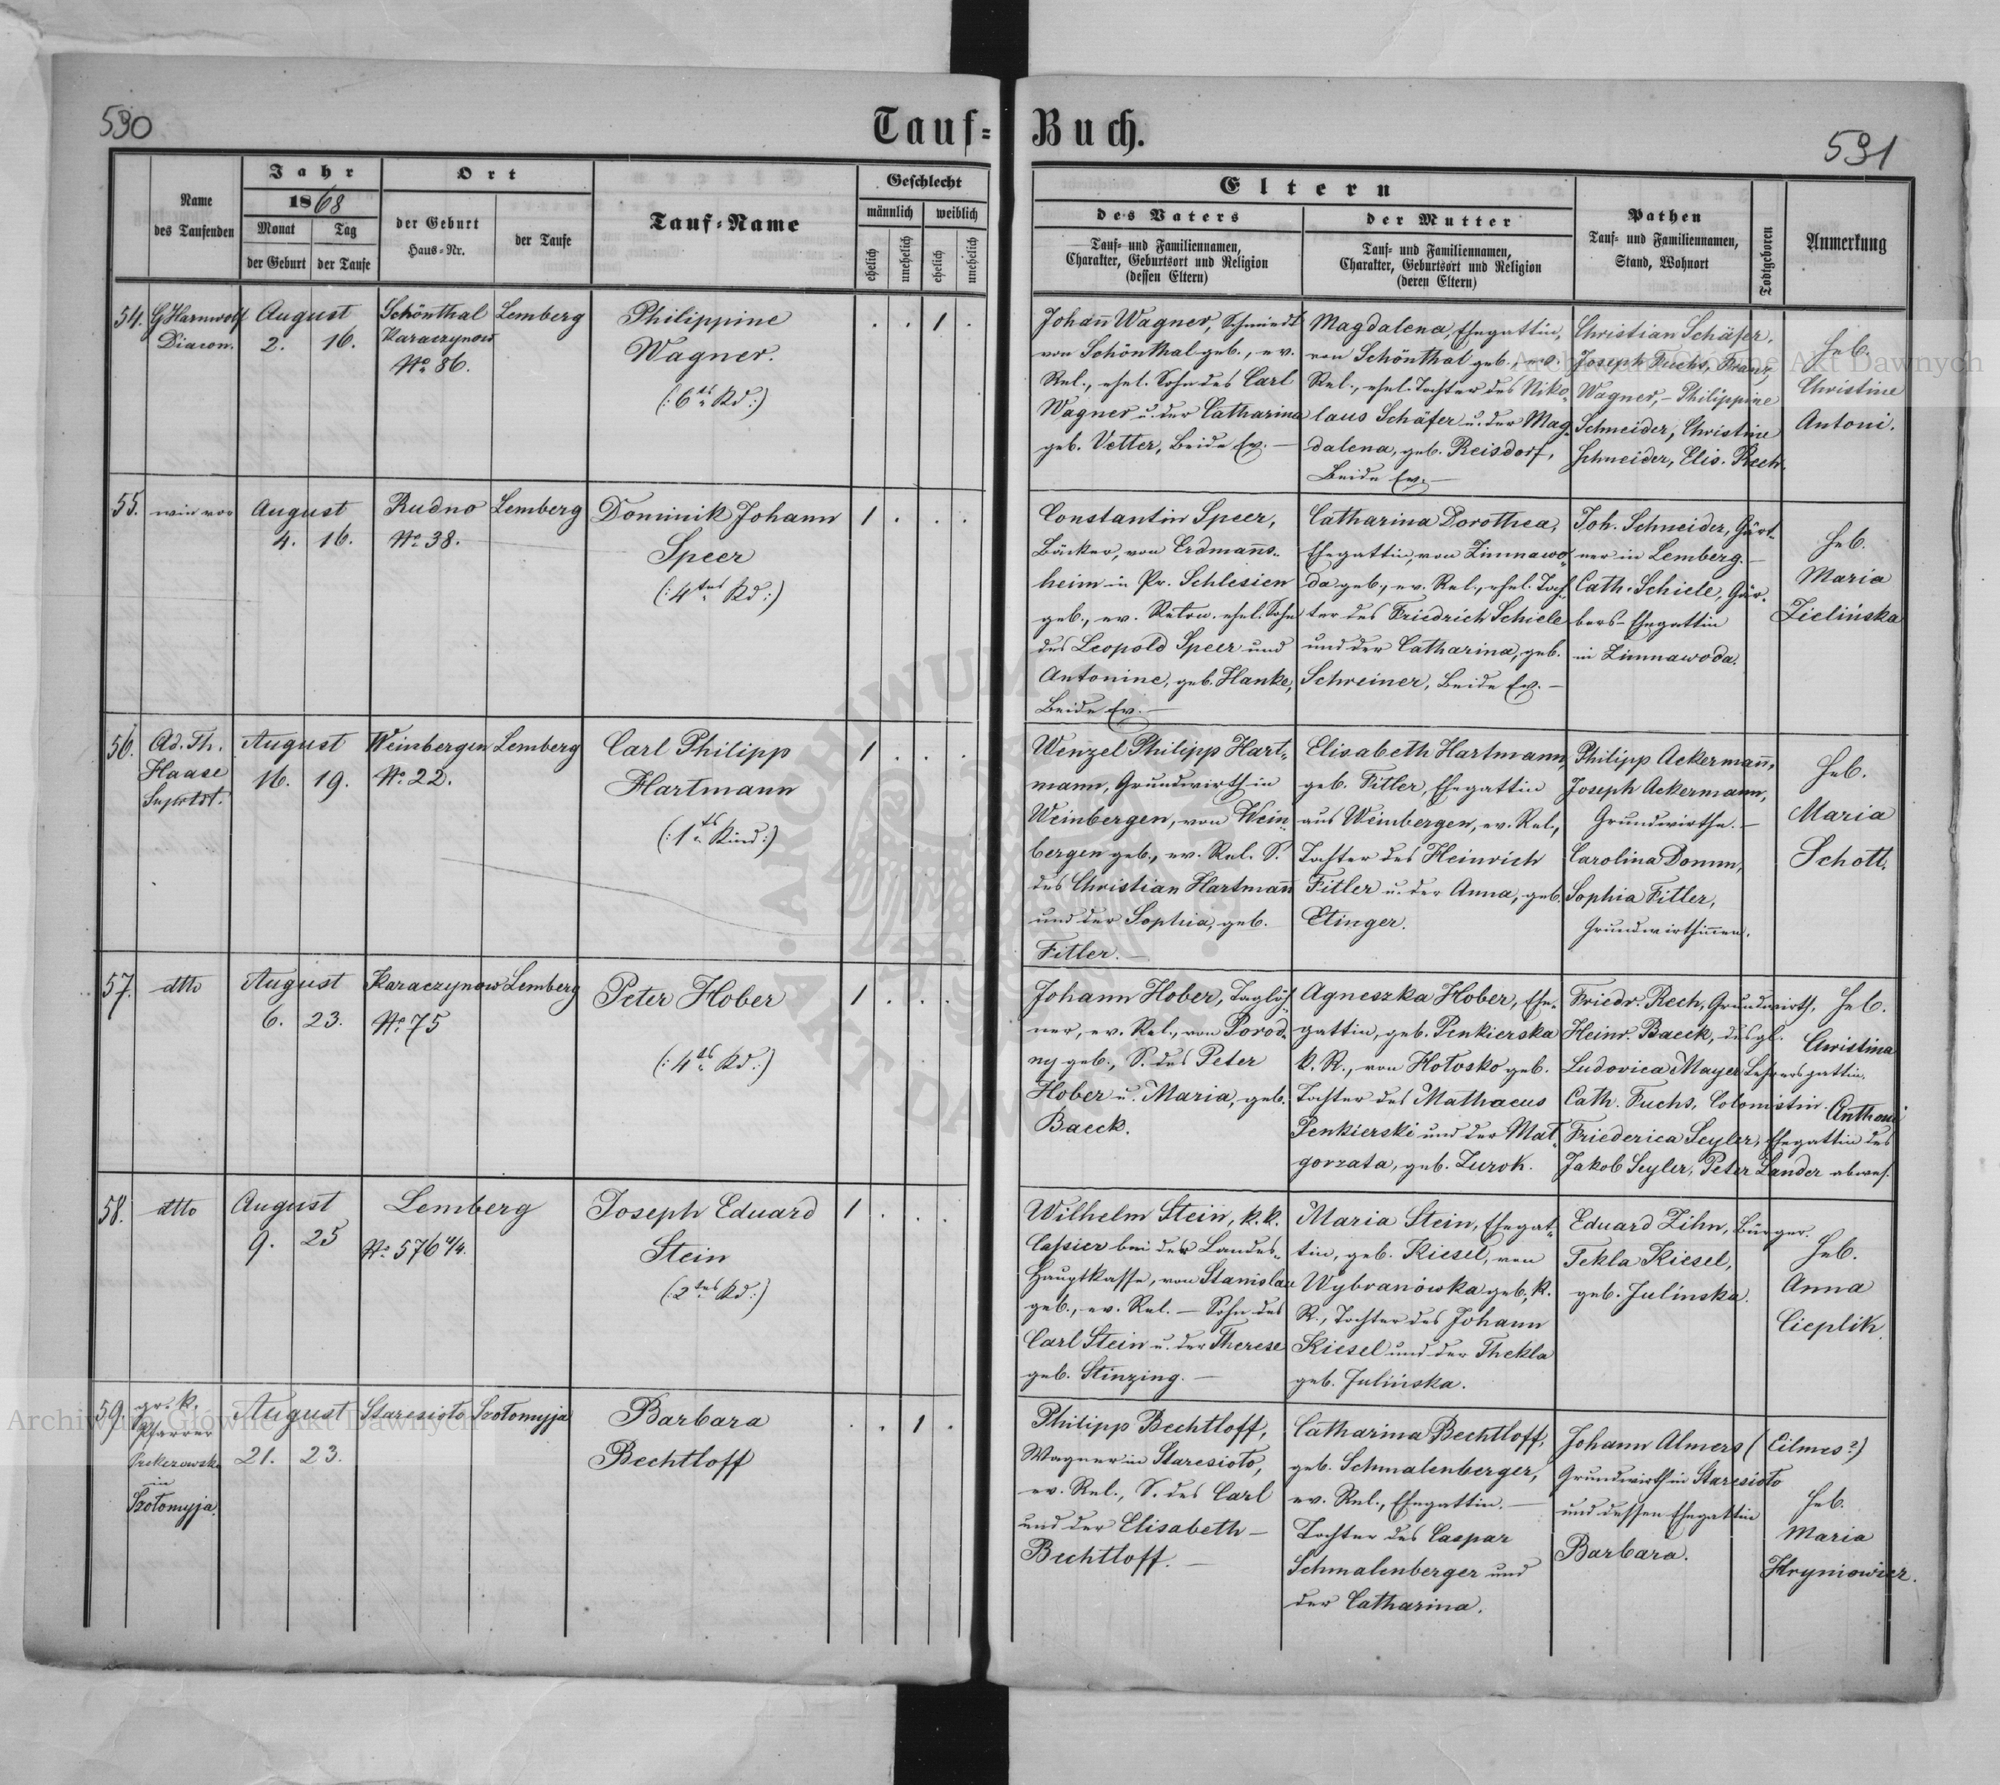 530
Tauf=
Buch.
531
Name
des Taufenden
Jahr
1868
Monat
Tag
der Geburt
der Taufe
Ort
der Geburt
Haus=Nr.
der Taufe
Tauf=Name
Geschlecht
männlich
weiblich
ehelich
unehelich
ehelich
unehelich
Eltern
des Vaters
Tauf= und Familiennamen,
Charakter, Geburtsort und Religion
(dessen Eltern)
der Mutter
Tauf= und Familiennamen,
Charakter, Geburtsort und Religion
(deren Eltern)
Pathen
Tauf= und Familiennamen,
Stand, Wohnort
Todtgeboren
Anmerkung
54.
G Harnwolf
Diacon.
August
2. 16.
Schönthal
Karaczynow
No 86.
Lemberg
Philippine
Wagner.
(: 6tes Kd :)
. . 1 .
Johañ Wagner, Schmiedt
von Schönthal geb., ev.
Rel., ehel. Sohn des Carl
Wagner u. der Catharina
geb. Vetter, Beide Ev. —
Magdalena, Ehegattin,
von Schönthal geb., ev.
Rel., ehel. Tochter des Niko=
laus Schäfer u. der Mag=
dalena, geb. Reisdorf,
Beide Ev. —
Christian Schäfer,
Joseph Fuchs, Franz
Wagner, — Philippine
Schneider, Christine
Schneider, Elis. Rech.
Heb.
Christine
Antoni.
55.
wie vor
August
4. 16.
Rudno
No 38.
Lemberg
Dominik Johann
Speer
(: 4tes Kd :)
1 . . .
Constantin Speer,
Bäcker, von Erdmañs=
heim in Pr. Schlesien
geb., ev. Relon. ehel. Sohn
des Leopold Speer und
Antonine, geb. Hanke,
Beide Ev. —
Catharina Dorothea,
Ehegattin, von Zimnawo=
da geb., ev. Rel., ehel. Toch=
ter des Friedrich Schiele
und der Catharina, geb.
Schreiner, Beide Ev. —
Joh. Schneider, Gärt=
ner in Lemberg. —
Cath. Schiele, Gär=
bers=Ehegattin
in Zimnawoda.
Heb.
Maria
Zielińska
56.
Ad. Th.
Haase
Suprtdt.
August
16. 19.
Weinbergen
No 22.
Lemberg
Carl Philipp
Hartmann
(: 1tes Kind :)
1 . . .
Wenzel Philipp Hart=
mann, Grundwirth in
Weinbergen, von Wein=
bergen geb., ev. Rel. S.
des Christian Hartmañ
und der Sophia, geb.
Fitler. —
Elisabeth Hartmann,
geb. Fitler, Ehegattin
aus Weinbergen, ev. Rel.,
Tochter des Heinrich
Fitler u. der Anna, geb.
Etinger.
Philipp Ackermañ,
Joseph Ackermann,
Grundwirthe. —
Carolina Domm,
Sophia Fitler,
Grundwirthiñen.
Heb.
Maria
Schott.
57.
dtto
August
6. 23.
Karaczynow
No 75
Lemberg
Peter Hober
(: 4tes Kd :)
1 . . .
Johann Hober, Taglöh=
ner, ev. Rel., von Porod=
ny geb., S. des Peter
Hober u. Maria, geb.
Baeck.
Agneszka Hober, Ehe=
gattin, geb. Penkierska
k. R., von Hołosko geb.
Tochter des Mathaeus
Penkierski und der Mał=
gorzata, geb. Zurok.
Friedr. Rech, Grundwirth,
Heinr. Baeck, desgl.
Ludovica Mayer Lehrersgattin.
Cath. Fuchs, Colonistin
Friederica Seyler, Ehegattin des
Jakob Seyler, Peter Lander abwes.
Heb.
Christina
Anthoni
58.
dtto
August
9. 25
Lemberg
No 576 4/4.
Joseph Eduard
Stein
(: 2tes Kd :)
1 . . .
Wilhelm Stein, k. k.
Cassier bei der Landes=
Hauptkasse, von Stanislau
geb., ev. Rel. — Sohn des
Carl Stein u. der Therese
geb. Stinzing. —
Maria Stein, Ehegat=
tin, geb. Kiesel, von
Wybranówka geb., k.
R., Tochter des Johann
Kiesel und der Thekla
geb. Julińska.
Eduard Zihn, Bürger.
Tekla Kiesel,
geb. Julinska.
Heb.
Anna
Cieplik.
59.
gr. k.
Pfarrer
in
Szołomyja.
August
21. 23.
Staresioło
Szołomyja
Barbara
Bechtloff
. . 1 .
Philipp Bechtloff,
Wagner in Staresioło,
ev. Rel., S. des Carl
und der Elisabeth —
Bechtloff. —
Catharina Bechtloff,
geb. Schmalenberger,
ev. Rel., Ehegattin. —
Tochter des Caspar
Schmalenberger und
der Catharina.
Johann Almers (Eilmes?)
Grundwirth in Staresioło
und dessen Ehegattin
Barbara.
Heb.
Maria
Kryniowicz.
Archiwum Główne Akt Dawnych
Archiwum Główne Akt Dawnych